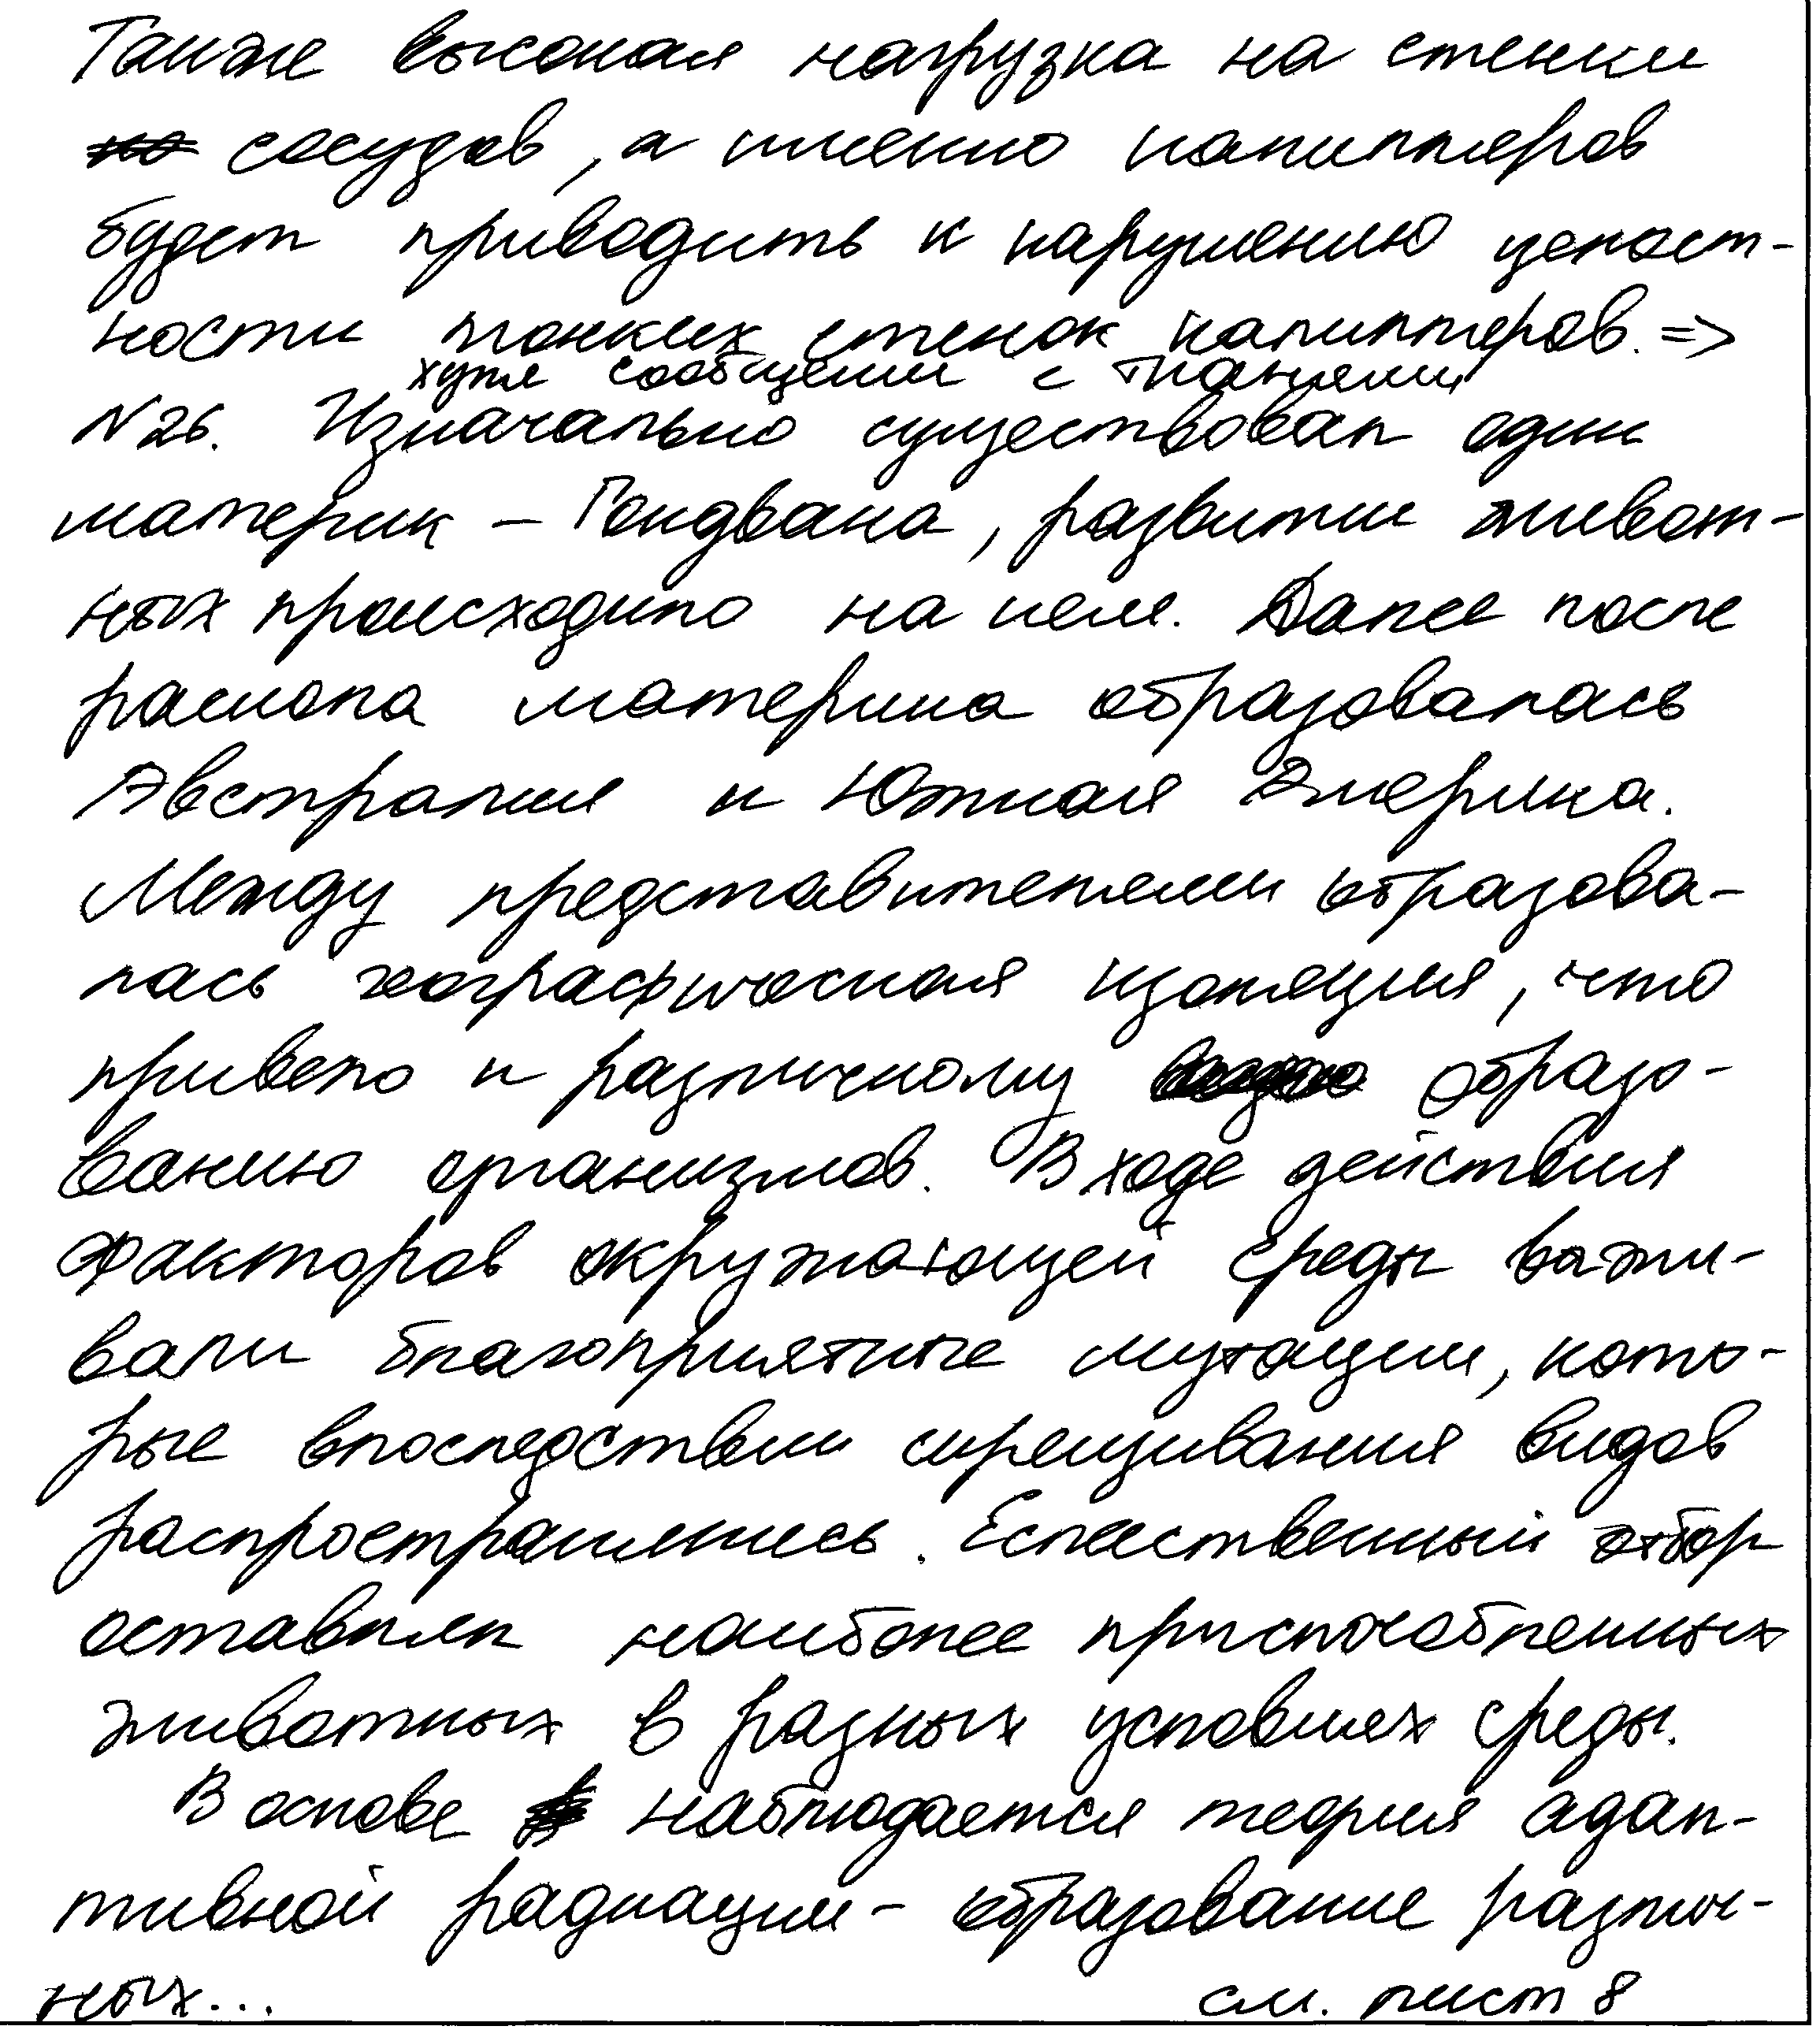 Также высокая нагрузка на стенки
сосудов, а именно капилляров
будет приводить к нарушению целост-
ности тонких стенок капилляров. =>
хуже сообщении с тканями
N26. Изначально существовал один
материк – Гондвана, развитие живот-
ных происходило на нем. Далее после
раскола материка образовалась
Австралия и Южная Америка.
Между представителями образова-
лась географическая изоляция, что
привело к различному образо-
ванию организмов. В ходе действия
факторов окружающей среды важи-
вали благоприятные мутации, кото-
рые впоследствии скрещивания видов
распространились. Естественный отбор
оставлял наиболее приспособленных
животных в разных условиях среды.
В основе наблюдается теория адап-
тивной радиации – образование различ-
ных... см. лист 8